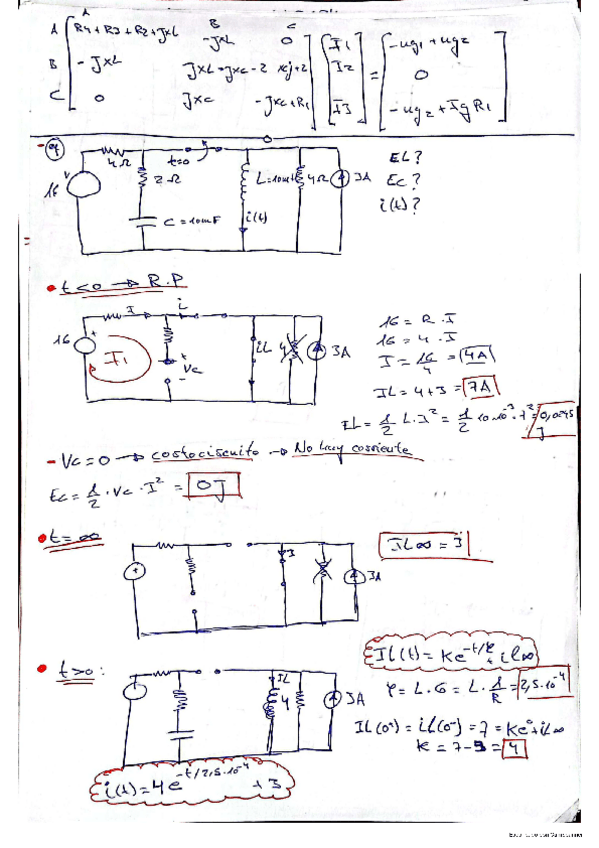 A B C
A R4+R3+R2+JXL -JXL 0 I1 -ug1+ug2
B -JXL JXL-JXC-2 XCJ+2 I2 = 0
C 0 JXC -JXC+R1 I3 -ug2+IgR1
- 9
4Ω t=0
V 16 2Ω L=10mH 4Ω 3A
C=10mF i(t)
EL?
Ec?
i(t)?
• t<0 → R.P
I i
16 + I1 + Vc - iL 4 3A
16 = R·I
16 = 4·I
I = 16/4 = 4A
IL = 4+3 = 7A
EL = 1/2 L·I² = 1/2 10·10⁻³·7² = 0,0245 J
- Vc=0 → cortocircuito → No hay corriente
Ec = 1/2·Vc·I² = 0J
• t=∞
+ I 3A
IL∞ = 3
• t>0:
IL 4 3A
IL(t) = Ke^-t/φ + iL∞
φ = L·G = L·1/R = 2,5·10⁻⁴
IL(0⁺) = iL(0⁻) = 7 = Ke⁰+iL∞
K = 7-3 = 4
i(t) = 4e^-t/2,5·10⁻⁴ + 3